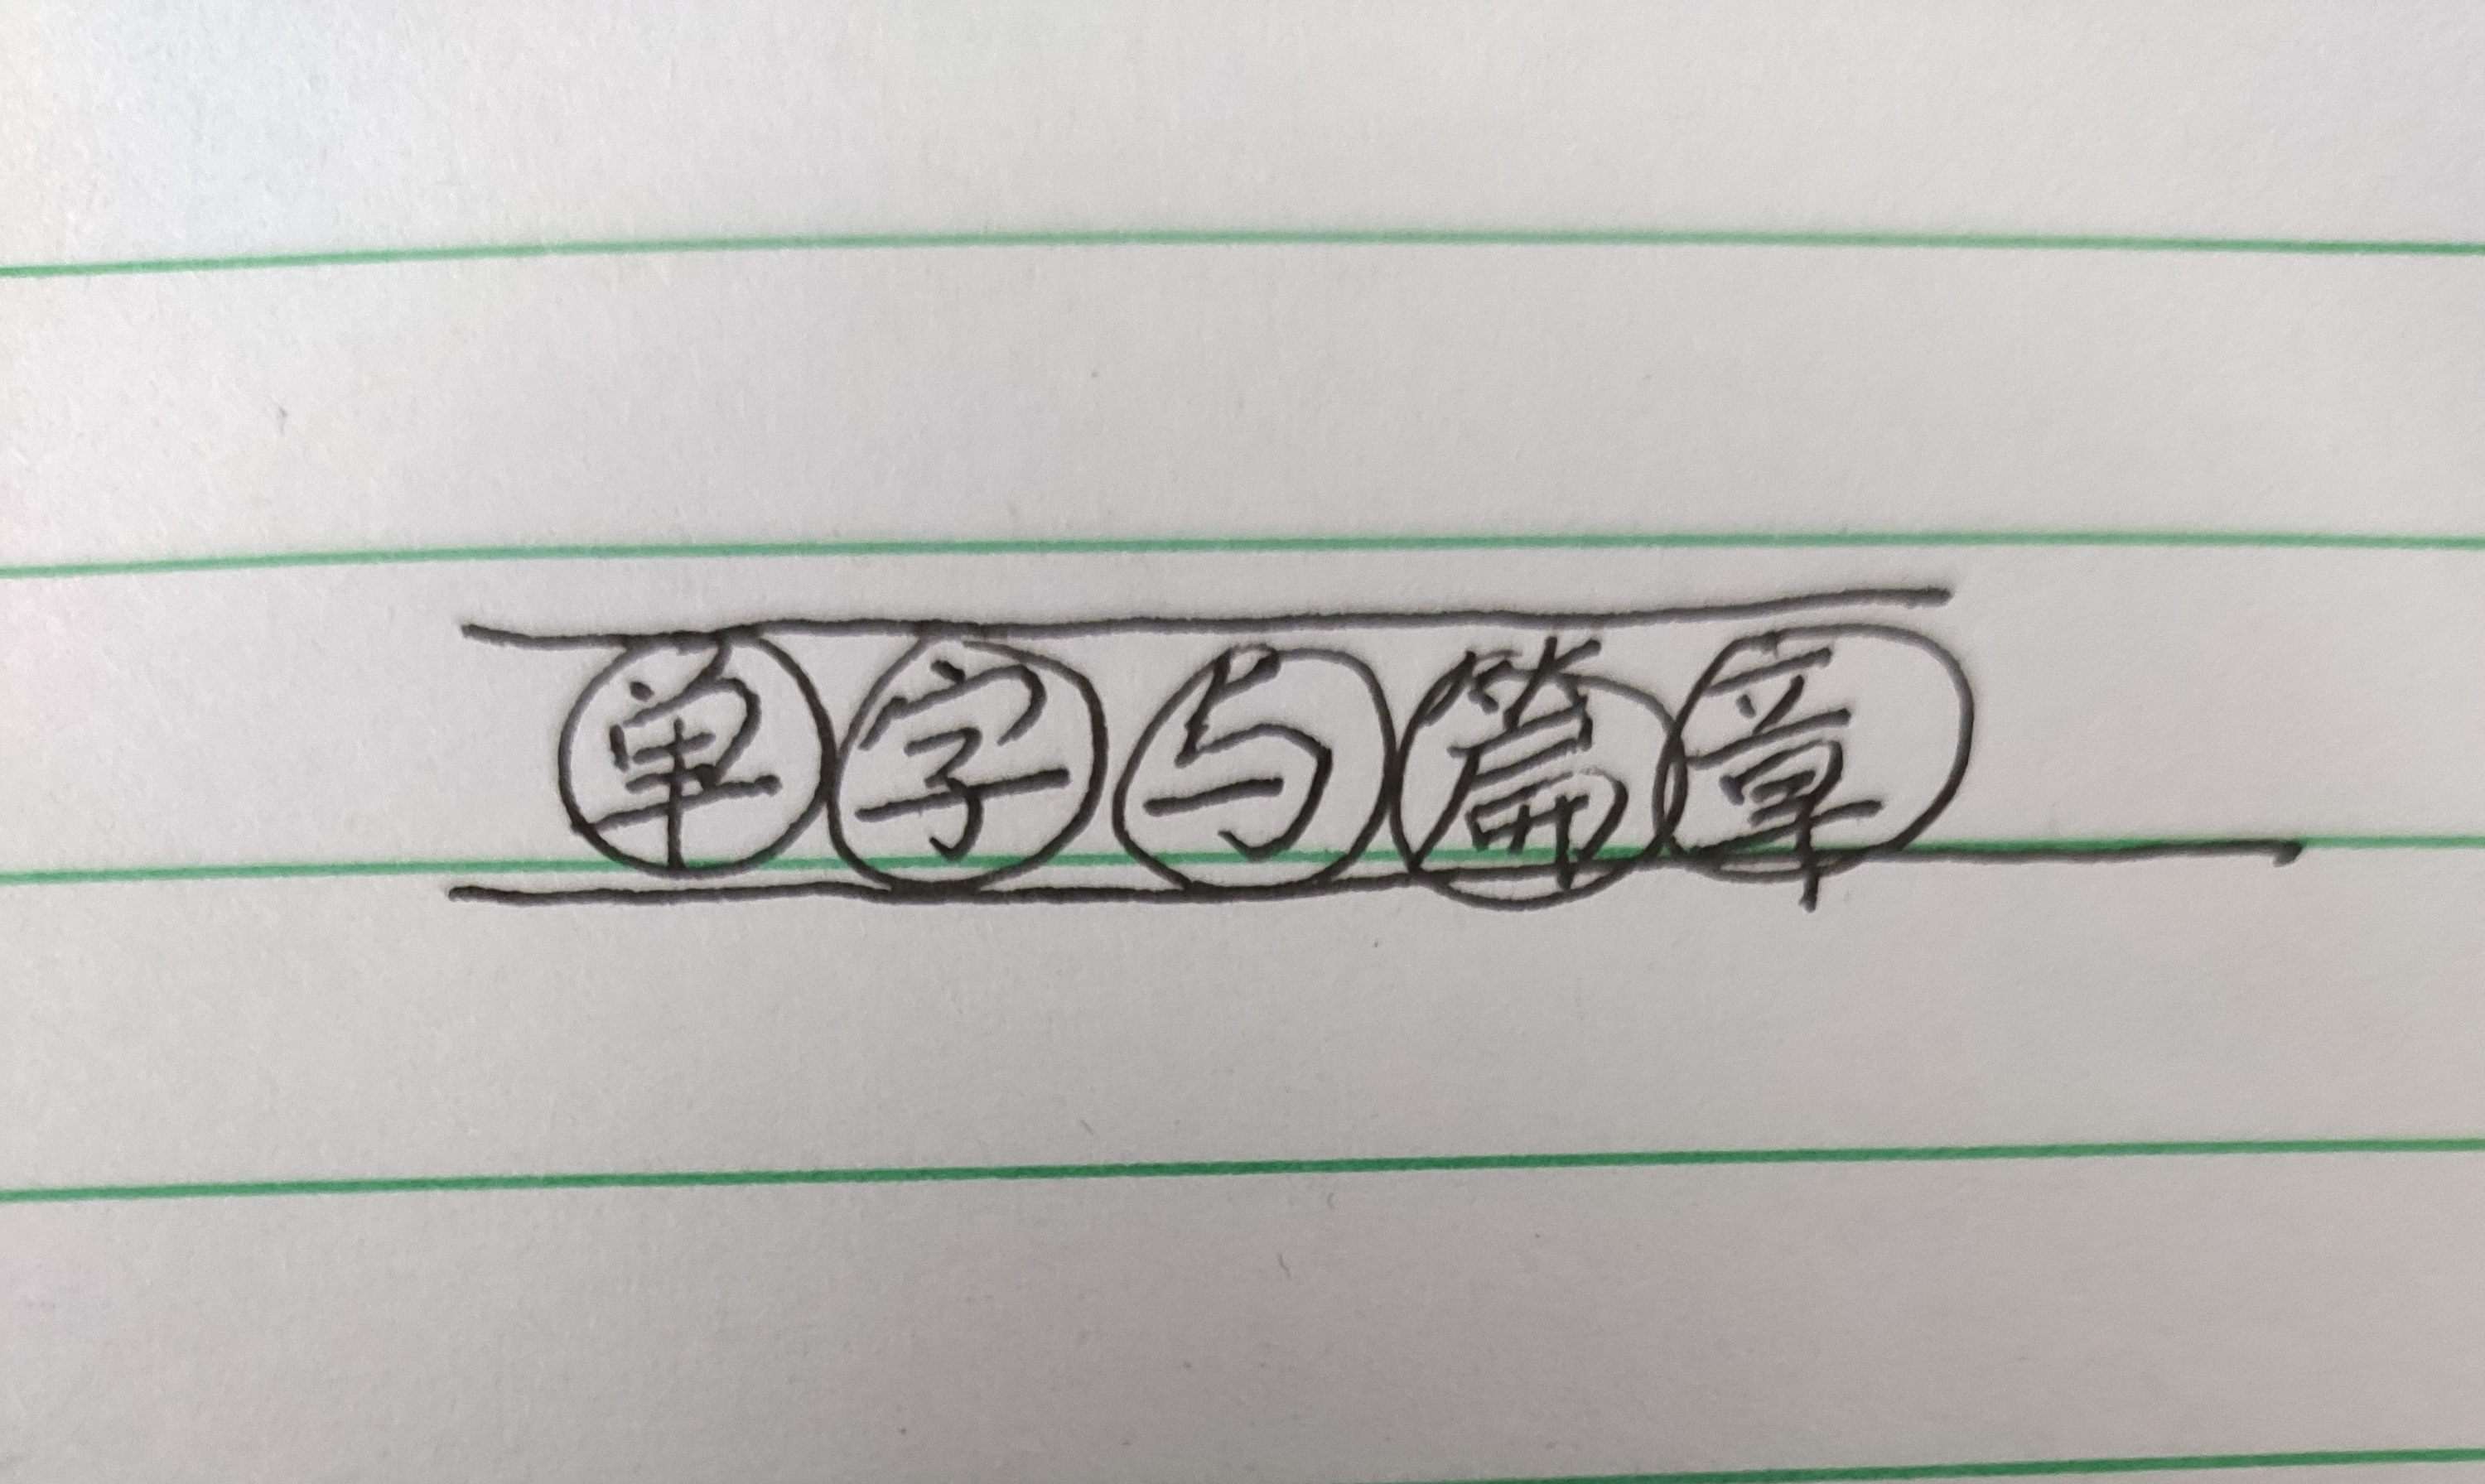 单字与篇章